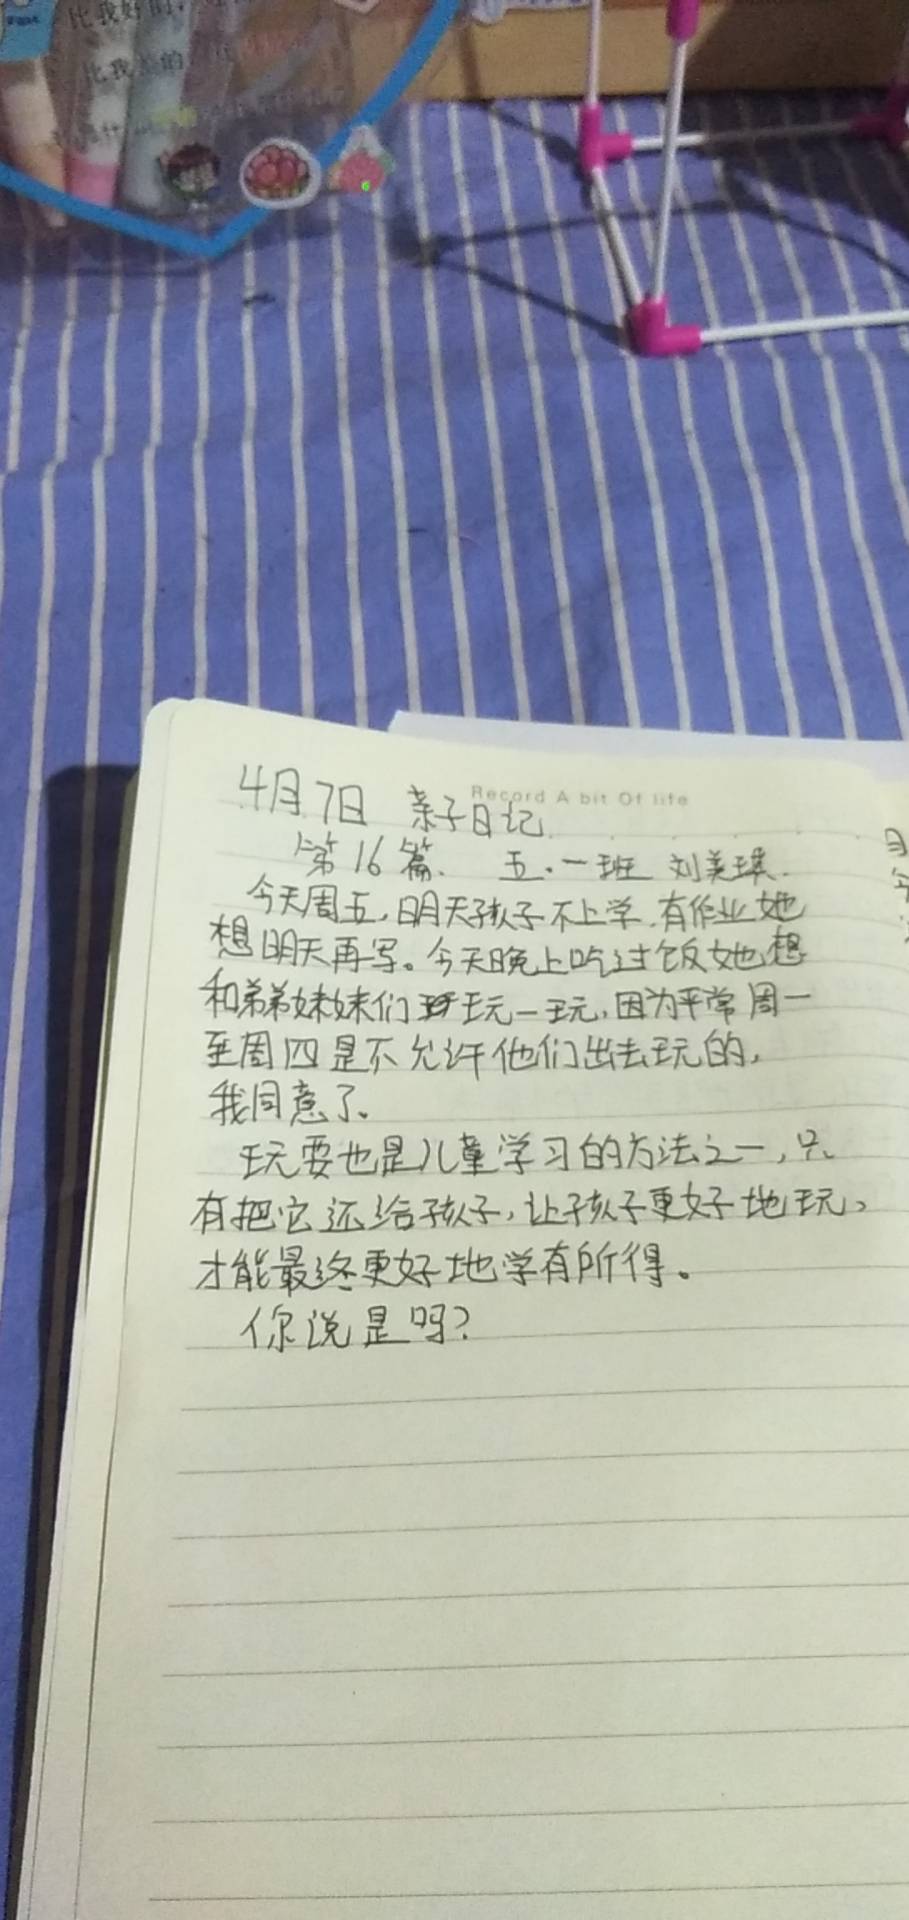 比我好的
比我 的
Record A bit Of life
4月7日 亲子日记
第16篇. 五.一班 刘美琪.
今天周五,明天孩子不上学.有作业她
想明天再写。今天晚上吃过饭她想
和弟弟妹妹们玩一玩,因为平常周一
至周四是不允许他们出去玩的,
我同意了。
玩耍也是儿童学习的方法之一,只
有把它还给孩子,让孩子更好地玩,
才能最终更好地学有所得。
你说是吗?